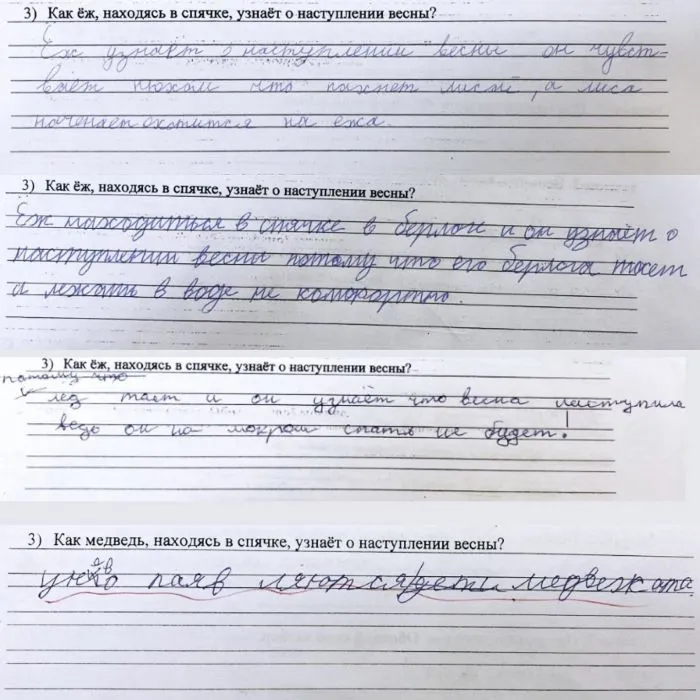 3) Как ёж, находясь в спячке, узнаёт о наступлении весны?
Ёж узнаёт о наступлении весны он чувст-
вает нюхом что пахнет лисой, а лиса
наченает охотится на ежа.
3) Как ёж, находясь в спячке, узнаёт о наступлении весны?
Ёж находиться в спячке в берлоге и он узнаёт о
наступлении весны потому что его берлога таєт
и лежать в воде не комфортно.
3) Как ёж, находясь в спячке, узнаёт о наступлении весны?
потому что
лёд тает и он узнаёт что весна наступила
ведь он на мокром спать не будет!
3) Как медведь, находясь в спячке, узнаёт о наступлении весны?
паяв ляются дети медвежата